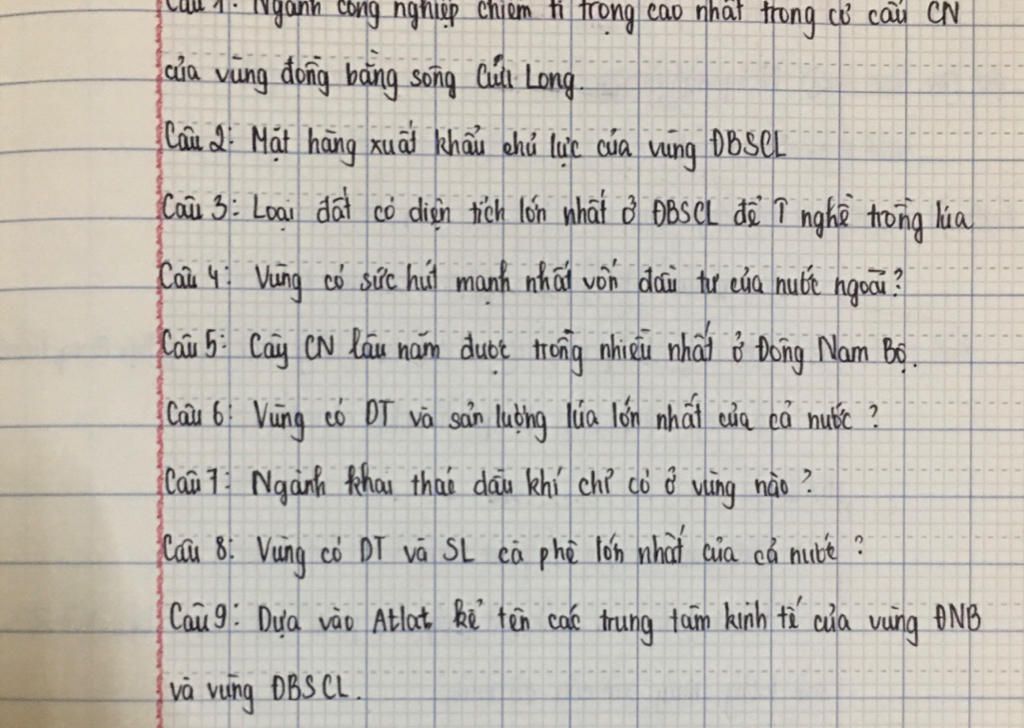 Câu 1: Ngành công nghiệp chiếm tỉ trọng cao nhất trong cơ cấu CN
của vùng đồng bằng sông Cửu Long.
Câu 2: Mặt hàng xuất khẩu chủ lực của vùng ĐBSCL
Câu 3: Loại đất có diện tích lớn nhất ở ĐBSCL để ↑ nghề trồng lúa
Câu 4: Vùng có sức hút mạnh nhất vốn đầu tư của nước ngoài?
Câu 5: Cây CN lâu năm được trồng nhiều nhất ở Đông Nam Bộ.
Câu 6: Vùng có DT và sản lượng lúa lớn nhất của cả nước?
Câu 7: Ngành khai thác dầu khí chỉ có ở vùng nào?
Câu 8: Vùng có DT và SL cà phê lớn nhất của cả nước?
Câu 9: Dựa vào Atlat kể tên các trung tâm kinh tế của vùng ĐNB
và vùng ĐBSCL.